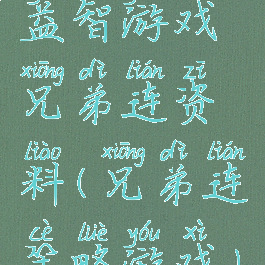 益智游戏
xiōng dì lián zī
兄弟连资
liào xiōng dì lián
料(兄弟连
cè lüè yóu xì
策略游戏)